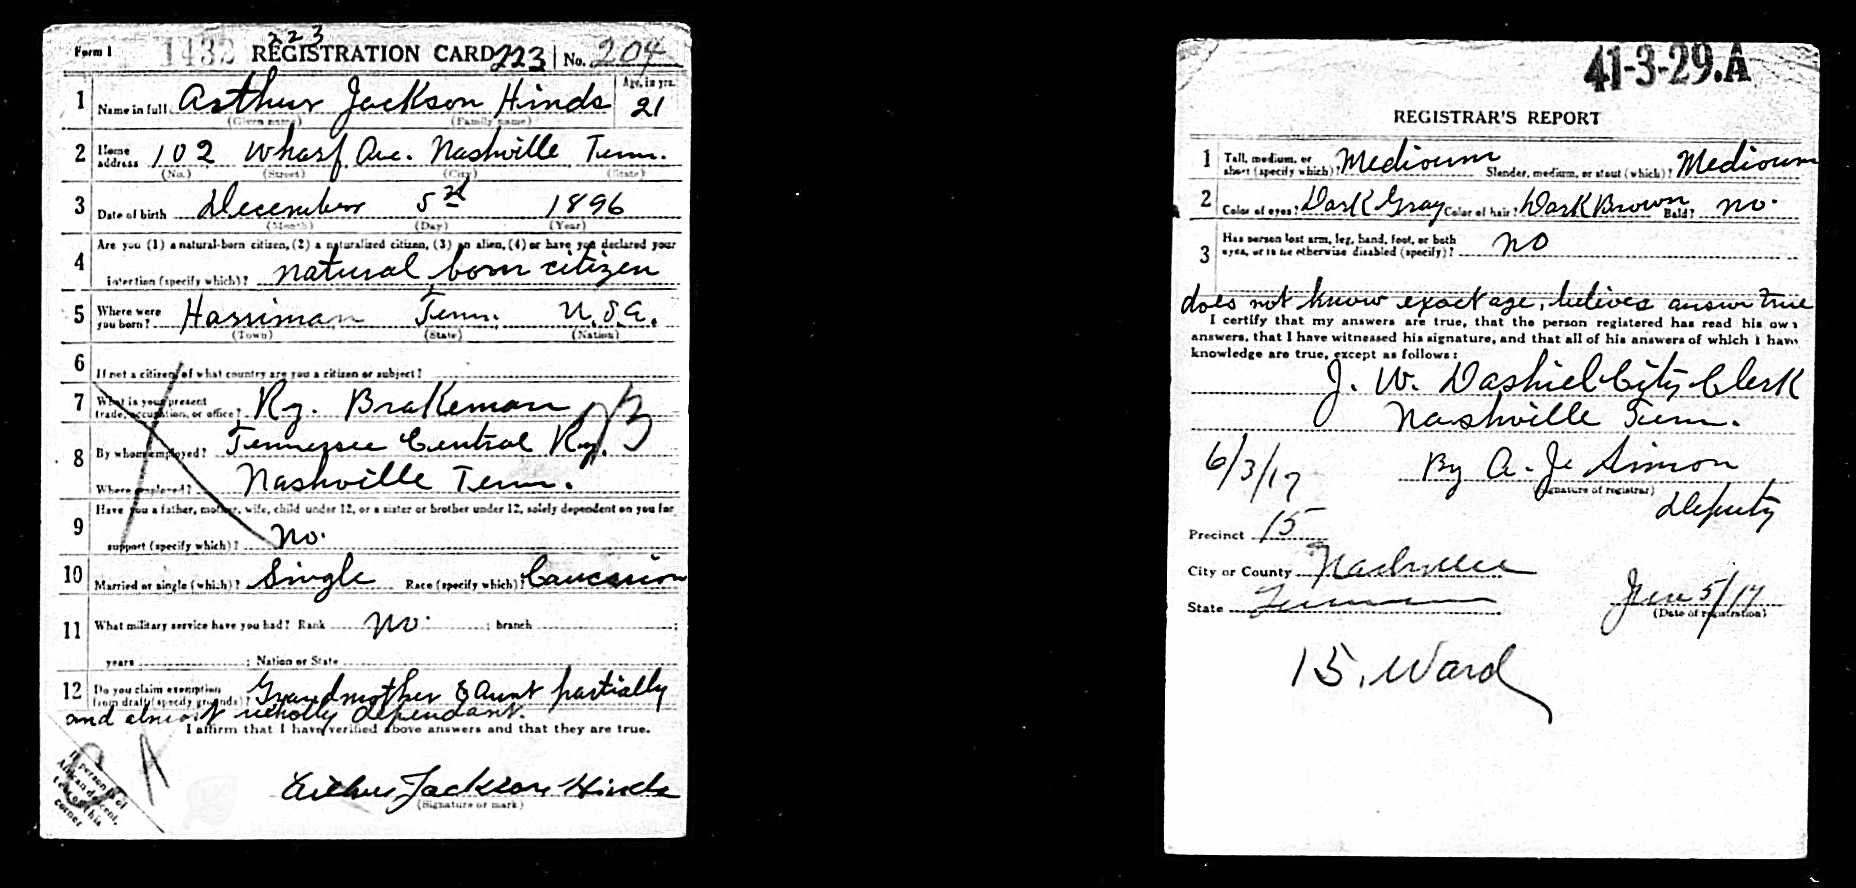 Form 1 1432 223 REGISTRATION CARD 223 No. 204
1 Name in full Arthur Jackson Hinds Age, in yrs. 21
(Given name) (Family name)
2 Home address 102 Wharf Ave. Nashville Tenn.
(No.) (Street) (City) (State)
3 Date of birth December 5th 1896
(Month) (Day) (Year)
Are you (1) a natural-born citizen, (2) a naturalized citizen, (3) an alien, (4) or have you declared your
4 intention (specify which)? natural born citizen
5 Where were you born? Harriman Tenn. U.S.A.
(Town) (State) (Nation)
6 If not a citizen, of what country are you a citizen or subject?
7 What is your present trade, occupation, or office? Ry. Brakeman
8 By whom employed? Tennessee Central Ry.
Where employed? Nashville Tenn.
Have you a father, mother, wife, child under 12, or a sister or brother under 12, solely dependent on you for
9 support (specify which)? no.
10 Married or single (which)? Single Race (specify which)? Caucasion
11 What military service have you had? Rank no. ; branch ;
years ; Nation or State
12 Do you claim exemption from draft (specify grounds)? Grandmother & Aunt partially
and almost wholly dependant.
I affirm that I have verified above answers and that they are true.
Arthur Jackson Hinds
(Signature or mark)
If person is of
African descent,
tear off this
corner
41-3-29.A
REGISTRAR'S REPORT
1 Tall, medium, or short (specify which)? Medioum Slender, medium, or stout (which)? Medioum
2 Color of eyes? Dark Gray Color of hair? Dark Brown Bald? no.
3 Has person lost arm, leg, hand, foot, or both
eyes, or is he otherwise disabled (specify)? no
does not know exact age, belives answr true
I certify that my answers are true, that the person registered has read his own
answers, that I have witnessed his signature, and that all of his answers of which I have
knowledge are true, except as follows:
J. W. Dashiel City Clerk
Nashville Tenn.
6/3/17 By A. J. Simon
(Signature of registrar)
Deputy
Precinct 15
City or County Nashville
State Tennessee June 5/17
(Date of registration)
15. Ward